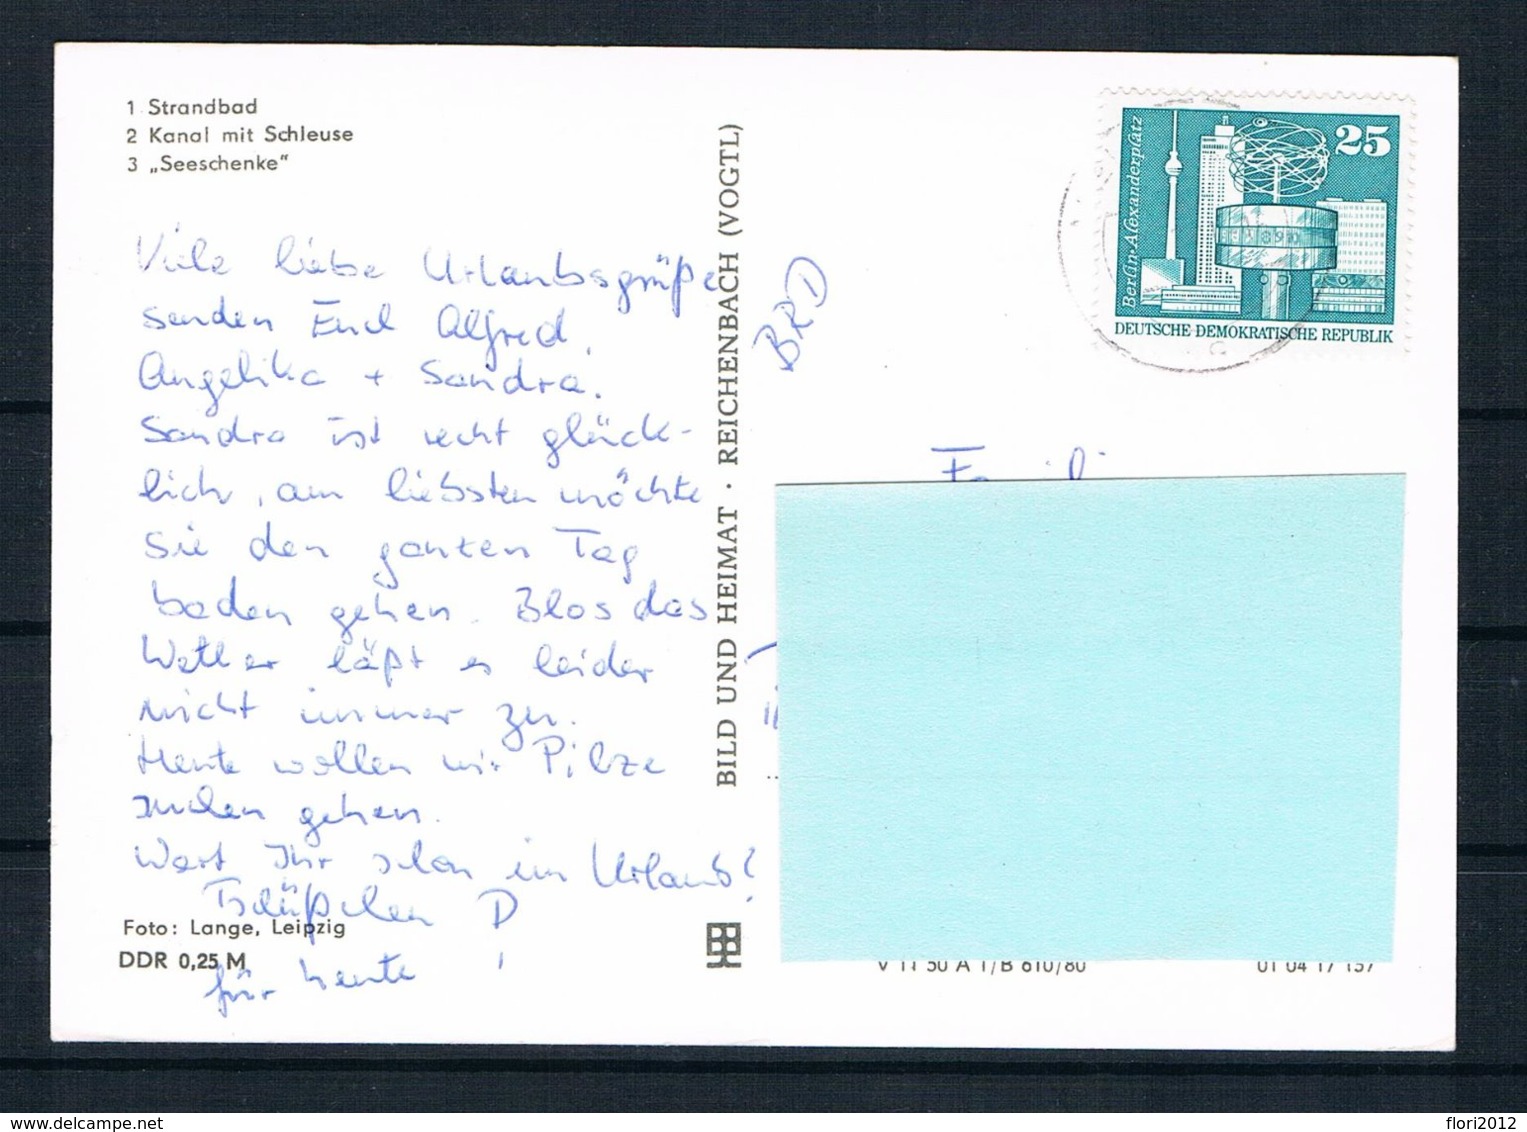 1 Strandbad
2 Kanal mit Schleuse
3 „Seeschenke“
Viele liebe Urlaubsgrüße
senden Euch Alfred,
Angelika + Sandra.
Sandra ist recht glück-
lich, am liebsten möchte
sie den ganzen Tag
baden gehen. Blos das
Wetter läßt es leider
nicht immer zu.
Heute wollen wir Pilze
suchen gehen.
Wart Ihr schon im Urlaub?
Tschüßchen
für heute !
Foto: Lange, Leipzig
DDR 0,25 M
BILD UND HEIMAT · REICHENBACH (VOGTL)
BRD
Berlin·Alexanderplatz
25
DEUTSCHE DEMOKRATISCHE REPUBLIK
Famili
V 11 50 A 1/B 610/80
01 04 17 157
delcampe.net
flori2012